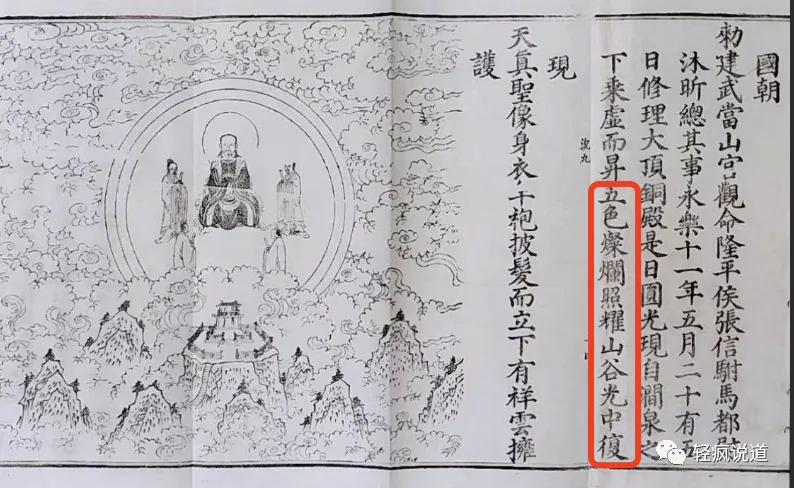 國朝
勑建武當山宮觀命隆平侯張信駙馬都尉
沐昕總其事永樂十一年五月二十有五
日修理大頂銅殿是日圓光現自澗泉之
下乘虛而昇五色燦爛照耀山谷光中復
現
天真聖像身衣袍披髮而立下有祥雲擁
護
轻疯说道